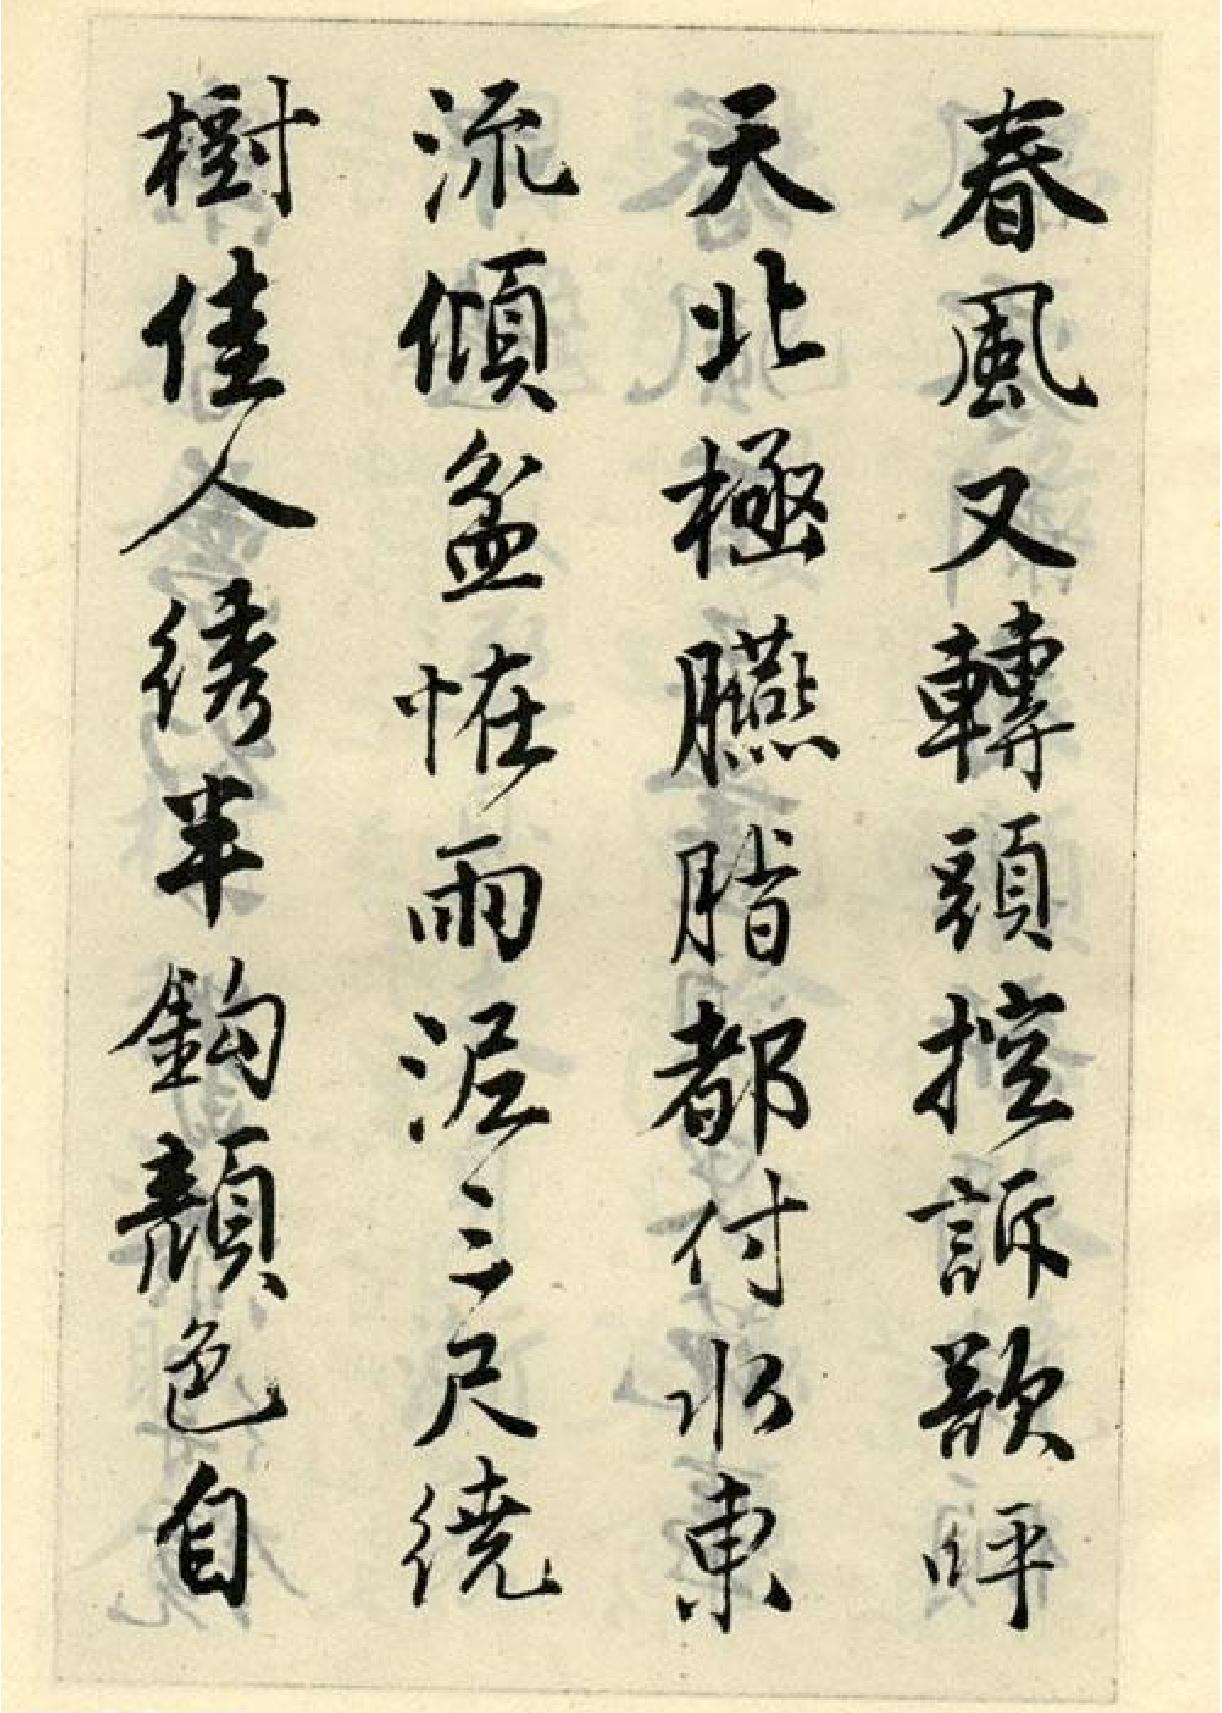 春風又轉頭控訴歌呼
天北極臙脂都付水東
流傾盆怪雨泥三尺繞
樹佳人绣半鈎顏色自